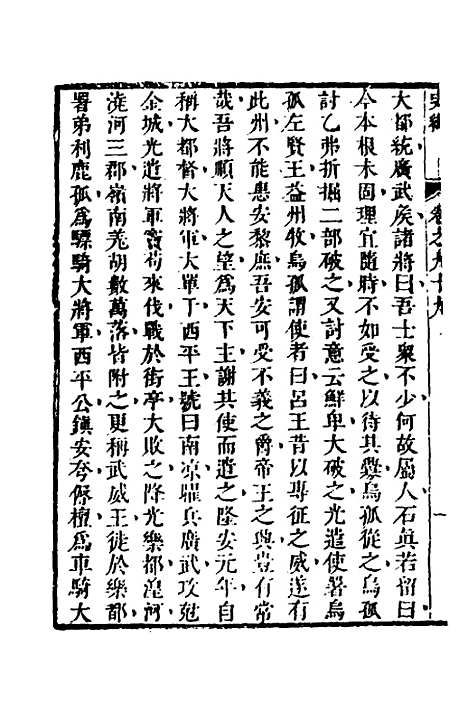 史緯
卷之九十九
一
大都統廣武矦諸將曰吾士衆不少何故屬人石眞若留曰
今本根未固理宜隨時不如受之以待其釁烏孤從之烏孤
討乙弗折掘二部破之又討意云鮮卑大破之光遣使署烏
孤左賢王益州牧烏孤謂使者曰呂王昔以專征之威遂有
此州不能惠安黎庶吾安可受不義之爵帝王之興豈有常
哉吾將順天人之望爲天下主謝其使而遣之隆安元年自
稱大都督大將軍大單于西平王號曰南凉耀兵廣武攻尅
金城光遣將軍竇苟來伐戰於街亭大敗之降光樂都湟河
澆河三郡嶺南羌胡數萬落皆附之更稱武威王徒於樂都
署弟利鹿孤爲驃騎大將軍西平公鎭安夸傉檀爲車騎大